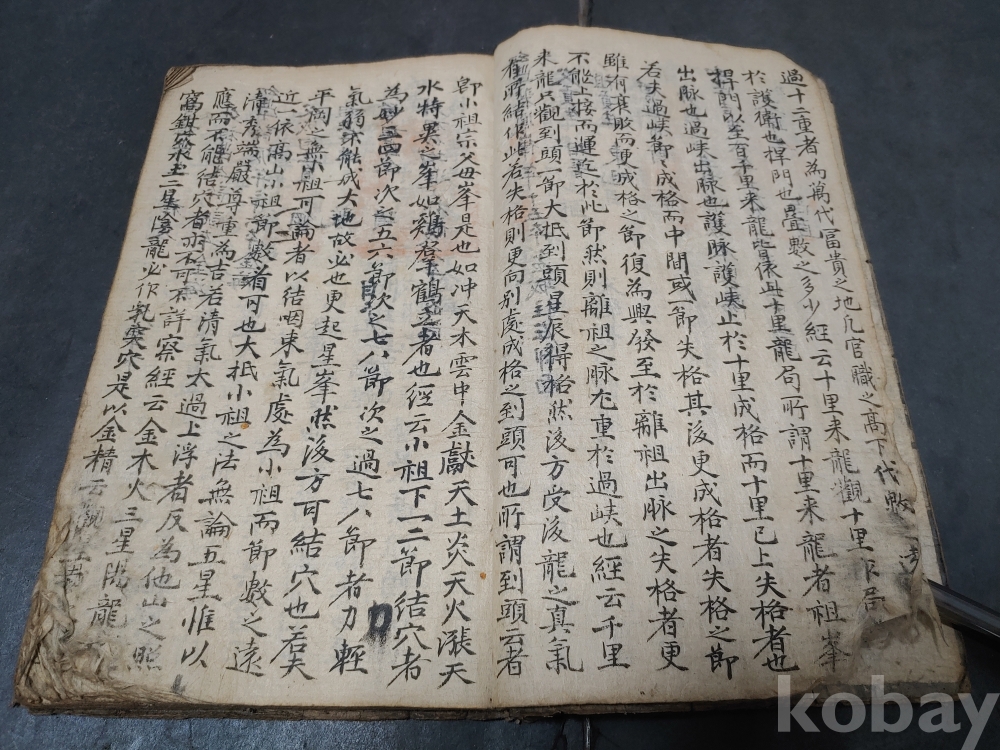 過十二重者為萬代富貴之地凡官職之高下代數
於護衛也捍門也疊數之多少經云十里來龍觀十里
捍門以至百千里來龍皆依此十里龍局所謂十里來龍者祖峯
出脉也過峽出脉也護脉護峽止於十里成格而十里已上失格者也
若夫過峽節節成格而中間或一節失格其後更成格者失格之節
雖有衰敗而更成格之節復為興發至於離祖出脉之失格者更
不能上接而運延於此節然則離祖之脉尤重於過峽也經云千里
來龍只觀到頭一節大抵到頭星辰得格然後方受後龍之真氣
有所結作此若失格則更向別處成格之到頭可也所謂到頭云者
卽小祖宗父母峯是也如冲天木雲中金獻天土炎天火漲天
水特異之峯如鷄羣鶴立者也經云小祖下一二節結穴者
為妙三四節次之五六節次之七八節次之過七八節者力輕
氣弱不能成大地故必也更起星峯然後方可結穴也若夫
平岡之無小祖可論者以結咽束氣處為小祖而節數之遠
近依高山小祖節數看可也大抵小祖之法無論五星惟以
清秀端嚴尊重為吉若清氣太過上浮者反為他山之照
應而不能結穴者亦不可不詳察經云金木火三星陽龍
窩鉗穴水土二星陰龍必作乳突穴是以金精云